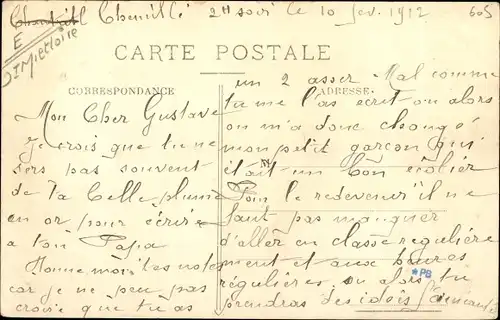 Chenillé 2H soir le 10 fev. 1912
605
E
CARTE POSTALE
CORRESPONDANCE
ADRESSE
Mon Cher Gustave
Je crois que tu ne
sers pas souvent
de ta belle plume
en or pour écrire
a ton Papa
Donne moi tes notes
car je ne peu pas
croire que tu as
un 2 assez Mal comme
tu me l'as ecrit ou alors
on m'a donc changé
mon petit garcon qui
était un bon écolier
Pour le redevenir il ne
faut pas manquer
d'aller en classe reguliere
ment et aux heures
régulières ou alors tu
prendras des idées
*PB